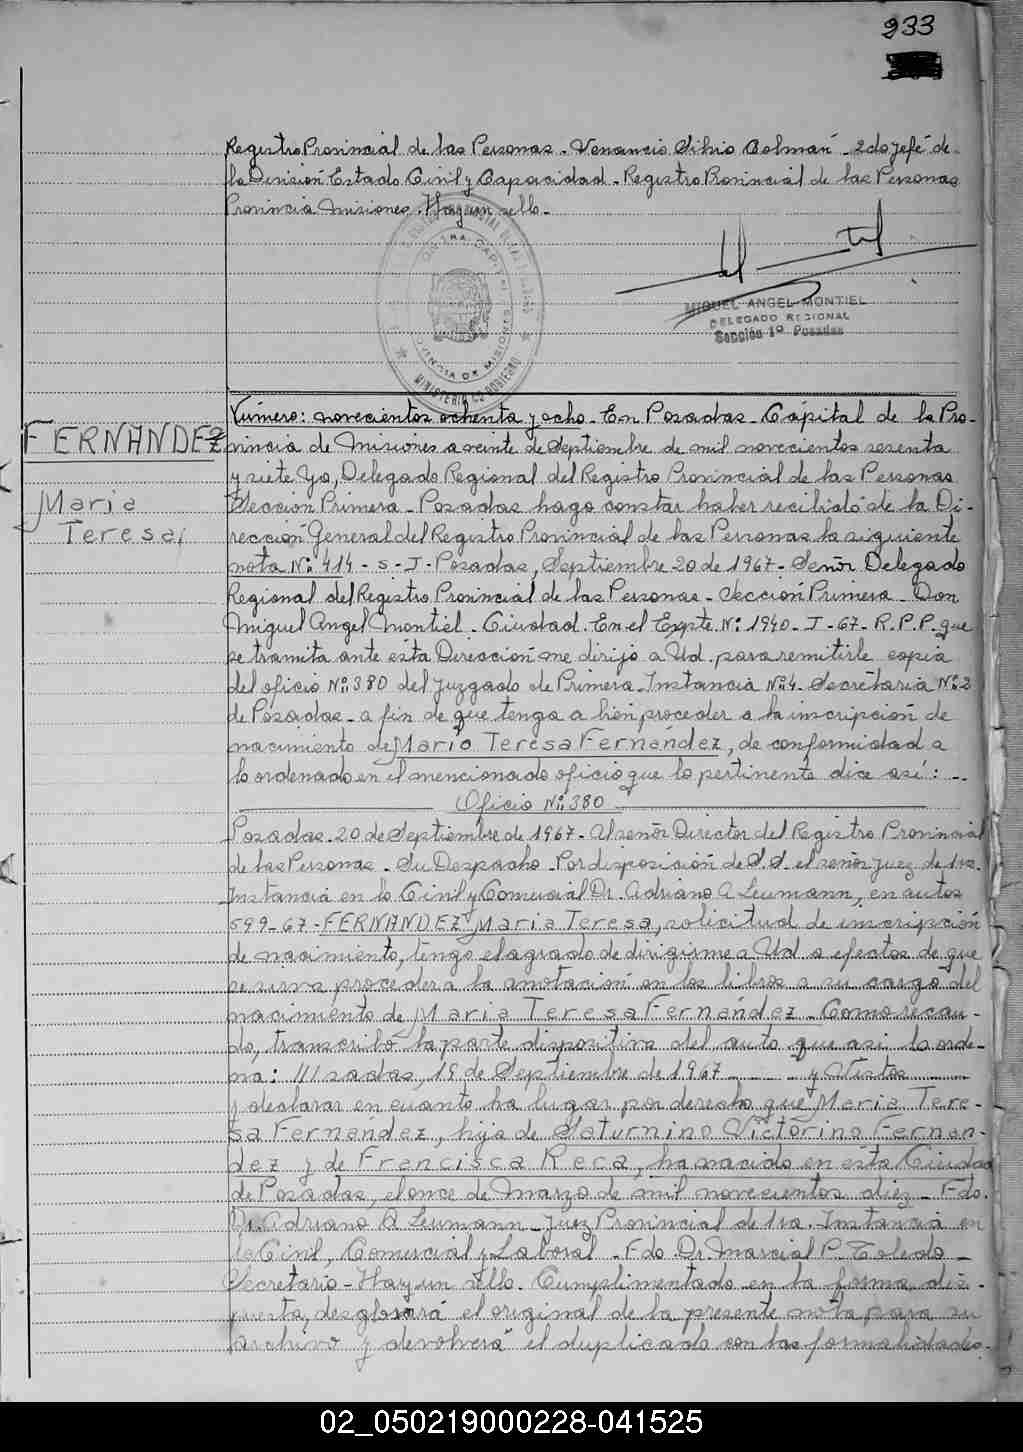 933
Registro Provincial de las Personas - Venancio Silvio Colmán - 2do Jefe de
la División Estado Civil y Capacidad - Registro Provincial de las Personas
Provincia Misiones. Hay un sello -
MIGUEL ANGEL MONTIEL
DELEGADO REGIONAL
Sección 1º Posadas
MINISTERIO DE GOBIERNO
Número: novecientos ochenta y ocho - En Posadas - Capital de la Pro-
FERNANDEZ
vincia de Misiones a veinte de Septiembre de mil novecientos sesenta
y siete Yo, Delegado Regional del Registro Provincial de las Personas
Maria
Sección Primera - Posadas hago constar haber recibido de la Di-
Teresa
rección General del Registro Provincial de las Personas la siguiente
nota Nº: 414 - S - J - Posadas, Septiembre 20 de 1967 - Señor Delegado
Regional del Registro Provincial de las Personas - Sección Primera - Don
Miguel Angel Montiel - Ciudad. En el Expte. Nº: 1940 - J - 67 - R.P.P. que
se tramita ante esta Dirección me dirijo a Ud. para remitirle copia
del oficio Nº: 380 del Juzgado de Primera Instancia Nº 4 - Secretaría Nº: 2
de Posadas - a fin de que tenga a bien proceder a la inscripción de
nacimiento de Maria Teresa Fernández, de conformidad a
lo ordenado en el mencionado oficio que lo pertinente dice así: -
Oficio Nº: 380
Posadas - 20 de Septiembre de 1967 - Al señor Director del Registro Provincial
de las Personas - Su Despacho - Por disposición de S.S. el señor Juez de 1ra.
Instancia en lo Civil y Comercial Dr. Adriano A Leumann, en autos
599-67 - FERNANDEZ Maria Teresa, solicitud de inscripción
de nacimiento, tengo el agrado de dirigirme a Ud a efectos de que
se sirva proceder a la anotación en los libros a su cargo del
nacimiento de Maria Teresa Fernández - Como recau-
do, transcribo la parte dispositiva del auto que así lo orde-
na: ///sadas, 19 de Septiembre de 1967 y Vistos
y declarar en cuanto ha lugar por derecho que Maria Tere-
sa Fernandez, hija de Saturnino Victorino Fernan-
dez y de Francisca Rera, ha nacido en esta Ciudad
de Posadas, el once de Marzo de mil novecientos diez - Fdo.
Dr. Adriano A Leumann - Juez Provincial de 1ra. Instancia en
lo Civil, Comercial y Laboral - Fdo. Dr Marcial P. Toledo -
Secretario - Hay un sello. Cumplimentado en la forma dis-
puesta, desglosará el original de la presente nota para su
archivo y devolverá el duplicado con las formalidades -
02_050219000228-041525